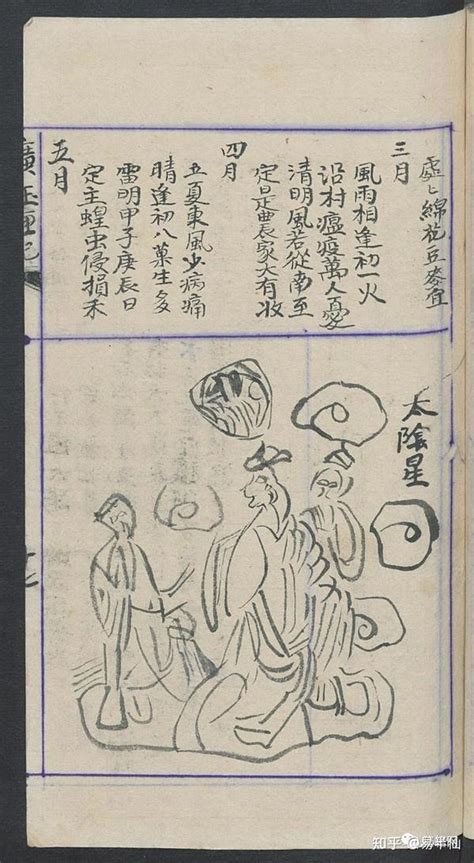 處々綿花豆麥宜
三月
風雨相逢初一火
沿村瘟疫萬人憂
清明風若從南至
定是農家大有收
四月
立夏東風少病痛
晴逢初八菓生多
雷明甲子庚辰日
定主蝗虫侵損禾
五月
廣玉匣記
太陰星
知乎 @易半仙